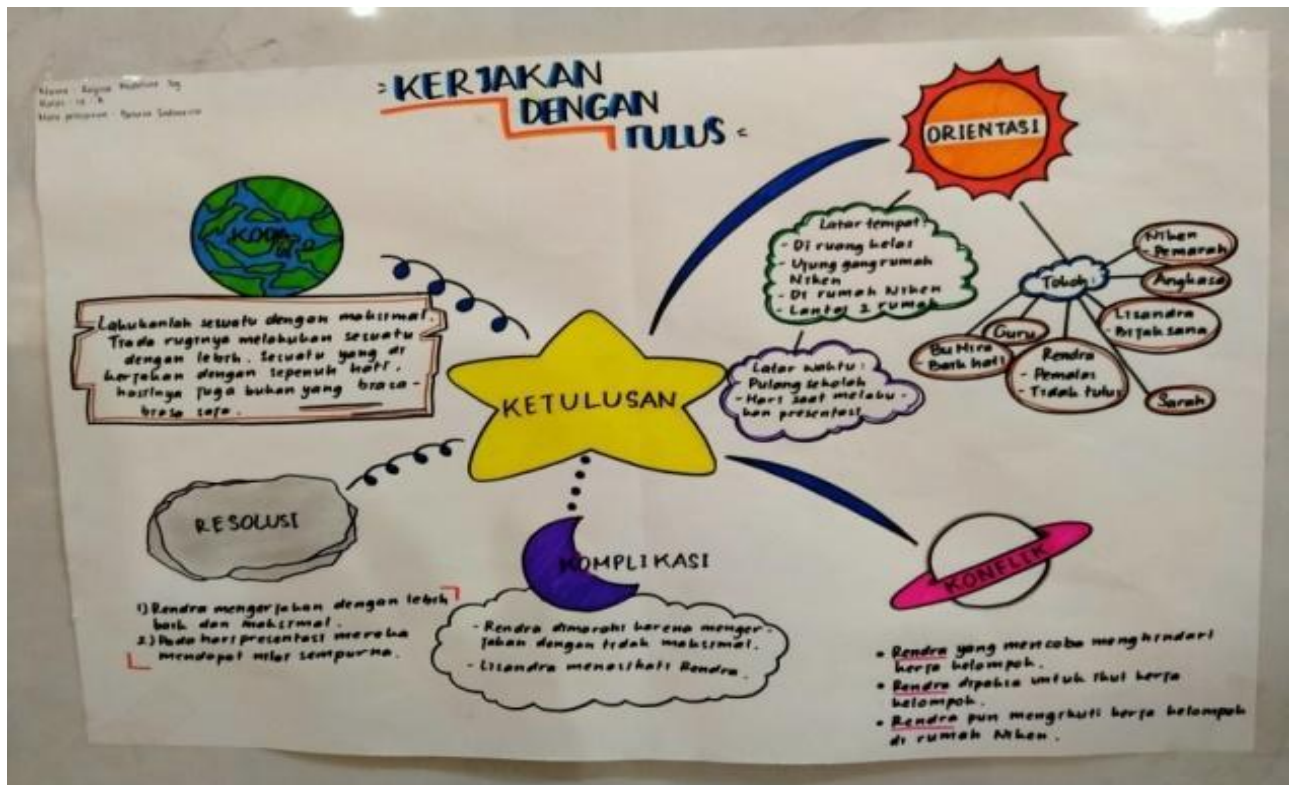 Nama : Regina
Kelas :
Mata pelajaran : Bahasa Indonesia
KERJAKAN
DENGAN
TULUS
ORIENTASI
Latar tempat :
- Di ruang kelas
- Ujung gang rumah
Niken
- Di rumah Niken
- Lantai 2 rumah
Latar waktu :
Pulang sekolah
- Hari saat melaku -
kan presentasi
Tokoh :
Niken
- Pemarah
Angkasa
Lisandra
- Bijaksana
Sarah
Rendra
- Pemalas
- Tidak tulus
Guru
Bu Nira
Baik hati
Lakukanlah sesuatu dengan maksimal.
Tiada ruginya melakukan sesuatu
dengan lebih. Sesuatu yang di
kerjakan dengan sepenuh hati,
hasilnya juga bukan yang biasa -
biasa saja.
KETULUSAN
RESOLUSI
1) Rendra mengerjakan dengan lebih
baik dan maksimal.
2) Pada hari presentasi mereka
mendapat nilai sempurna.
KOMPLIKASI
- Rendra dimarahi karena menger -
jakan dengan tidak maksimal.
- Lisandra menasihati Rendra.
KONFLIK
• Rendra yang mencoba menghindari
kerja kelompok.
• Rendra dipaksa untuk ikut kerja
kelompok.
• Rendra pun mengikuti kerja kelompok
di rumah Niken.